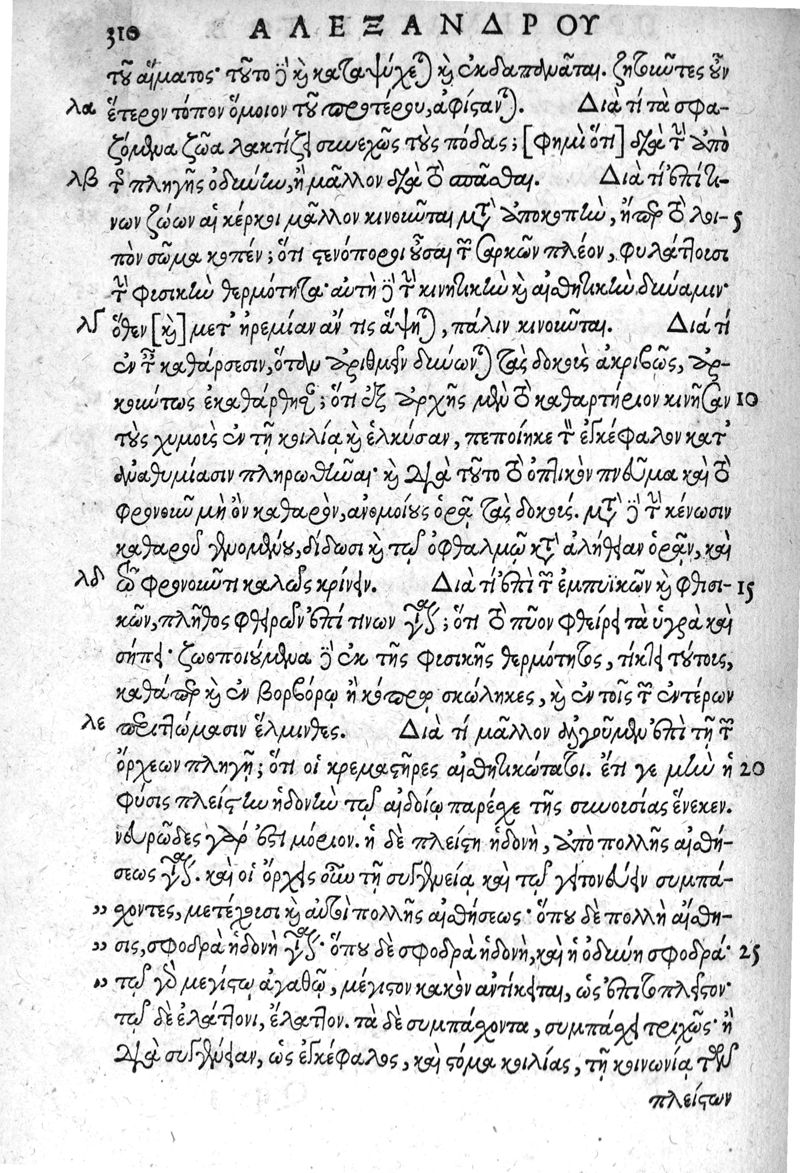 310 ΑΛΕΞΑΝΔΡΟΥ
τοῦ αἵματος· τοῦτο γὰρ καὶ καταψύχεται καὶ ἐκδαπανᾶται. ζητοῦντες οὖν
λα ἕτερον τόπον ὅμοιον τοῦ προτέρου, ἀφίστανται. Διὰ τί τὰ σφα-
ζόμενα ζῶα λακτίζει συνεχῶς τοὺς πόδας; [φημὶ ὅτι] διὰ τὴν ἀπὸ
λβ τῆς πληγῆς ὀδύνην, ἢ μᾶλλον διὰ τὸ σπᾶσθαι. Διὰ τί ἐπί τι-
νων ζώων αἱ κέρκοι μᾶλλον κινοῦνται μετὰ τὴν ἀποκοπὴν, ἤπερ τὸ λοι- 5
πὸν σῶμα κοπέν; ὅτι στενόποροι οὖσαι τῶν σαρκῶν πλέον, φυλάττουσι
τὴν φυσικὴν θερμότητα· αὐτὴ γὰρ τὴν κινητικὴν καὶ αἰσθητικὴν δύναμιν·
λγ ὅθεν [καὶ] μετ' ἠρεμίαν ἄν τις ἅψηται, πάλιν κινοῦνται. Διά τί
ἐν ταῖς καθάρσεσιν, ὅταν ἀριθμεῖν δύνωνται τὰς δοκοὺς ἀκριβῶς, ἀρ-
κούντως ἐκαθάρθησαν; ὅτι ἐξ ἀρχῆς μὲν τὸ καθαρτήριον κινῆσαν 10
τοὺς χυμοὺς ἐν τῇ κοιλίᾳ καὶ ἑλκύσαν, πεποίηκε τὸν ἐγκέφαλον κατ'
ἀναθυμίασιν πληρωθῆναι· καὶ διὰ τοῦτο τὸ ὀπτικὸν πνεῦμα καὶ τὸ
φρονοῦν μὴ ὂν καθαρὸν, ἀνομοίους ὁρᾷ τὰς δοκούς. μετὰ γὰρ τὴν κένωσιν
καθαροῦ γενομένου, δίδωσι καὶ τῷ ὀφθαλμῷ κατὰ ἀλήθειαν ὁρᾷν, καὶ
λδ τῷ φρονοῦντι καλῶς κρίνειν. Διὰ τί ἐπὶ τῶν ἐμπυϊκῶν καὶ φθισι- 15
κῶν, πλῆθος φθειρῶν ἐπί τινων γίνεται; ὅτι τὸ πῦον φθείρει τὰ ὑγρὰ καὶ
σήπει· ζωοποιούμενα γὰρ ἐκ τῆς φυσικῆς θερμότητος, τίκτει τούτους,
καθάπερ καὶ ἐν βορβόρῳ ἢ κόπρῳ σκώληκες, καὶ ἐν τοῖς τῶν ἐντέρων
λε περιττώμασιν ἕλμινθες. Διὰ τί μᾶλλον ἀλγοῦμεν ἐπὶ τῇ τῶν
ὄρχεων πληγῇ; ὅτι οἱ κρεμαστῆρες αἰσθητικώτατοι. ἔτι γε μὴν ἡ 20
φύσις πλείστην ἡδονὴν τῷ αἰδοίῳ παρέχει τῆς συνουσίας ἕνεκεν.
νευρῶδες γάρ ἐστι μόριον. ἡ δὲ πλείστη ἡδονὴ, ἀπὸ πολλῆς αἰσθή-
σεως γίνεται. καὶ οἱ ὄρχεις οὖν τῇ συγγενείᾳ καὶ τῷ γειτονεύειν συμπά-
„ χοντες, μετέχουσι καὶ αὐτοὶ πολλῆς αἰσθήσεως· ὅπου δὲ πολλὴ αἴσθη-
„ σις, σφοδρὰ ἡδονὴ γίνεται· ὅπου δὲ σφοδρὰ ἡδονὴ, καὶ ἡ ὀδύνη σφοδρά· 25
„ τῷ γὰρ μεγίστῳ ἀγαθῷ, μέγιστον κακὸν ἀντίκειται, ὡς ἐπιτοπλεῖστον·
τῷ δὲ ἐλάττονι, ἔλαττον. τὰ δὲ συμπάσχοντα, συμπάσχει τριχῶς· ἢ
διὰ συγγένειαν, ὡς ἐγκέφαλος, καὶ στόμα κοιλίας, τῇ κοινωνίᾳ τῶν
πλείστων